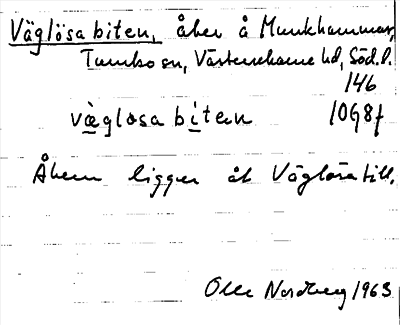 Väglösa biten, åker å Munkhammar,
Tumbo sn, Västerrekarne hd, Söd.l.
146
väglosa bitän 10G8f
Åkern ligger åt Väglösa till.
Olle Nordberg 1963